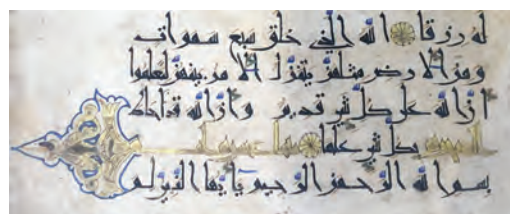 له رزقا الله الذي خلق سبع سموات
ومن الارض مثلهن يتنزل الامر بينهن لتعلموا
ان الله على كل شي قدير وان الله قد احاط
بكل شي علما
بسم الله الرحمن الرحيم يايها النبي لم